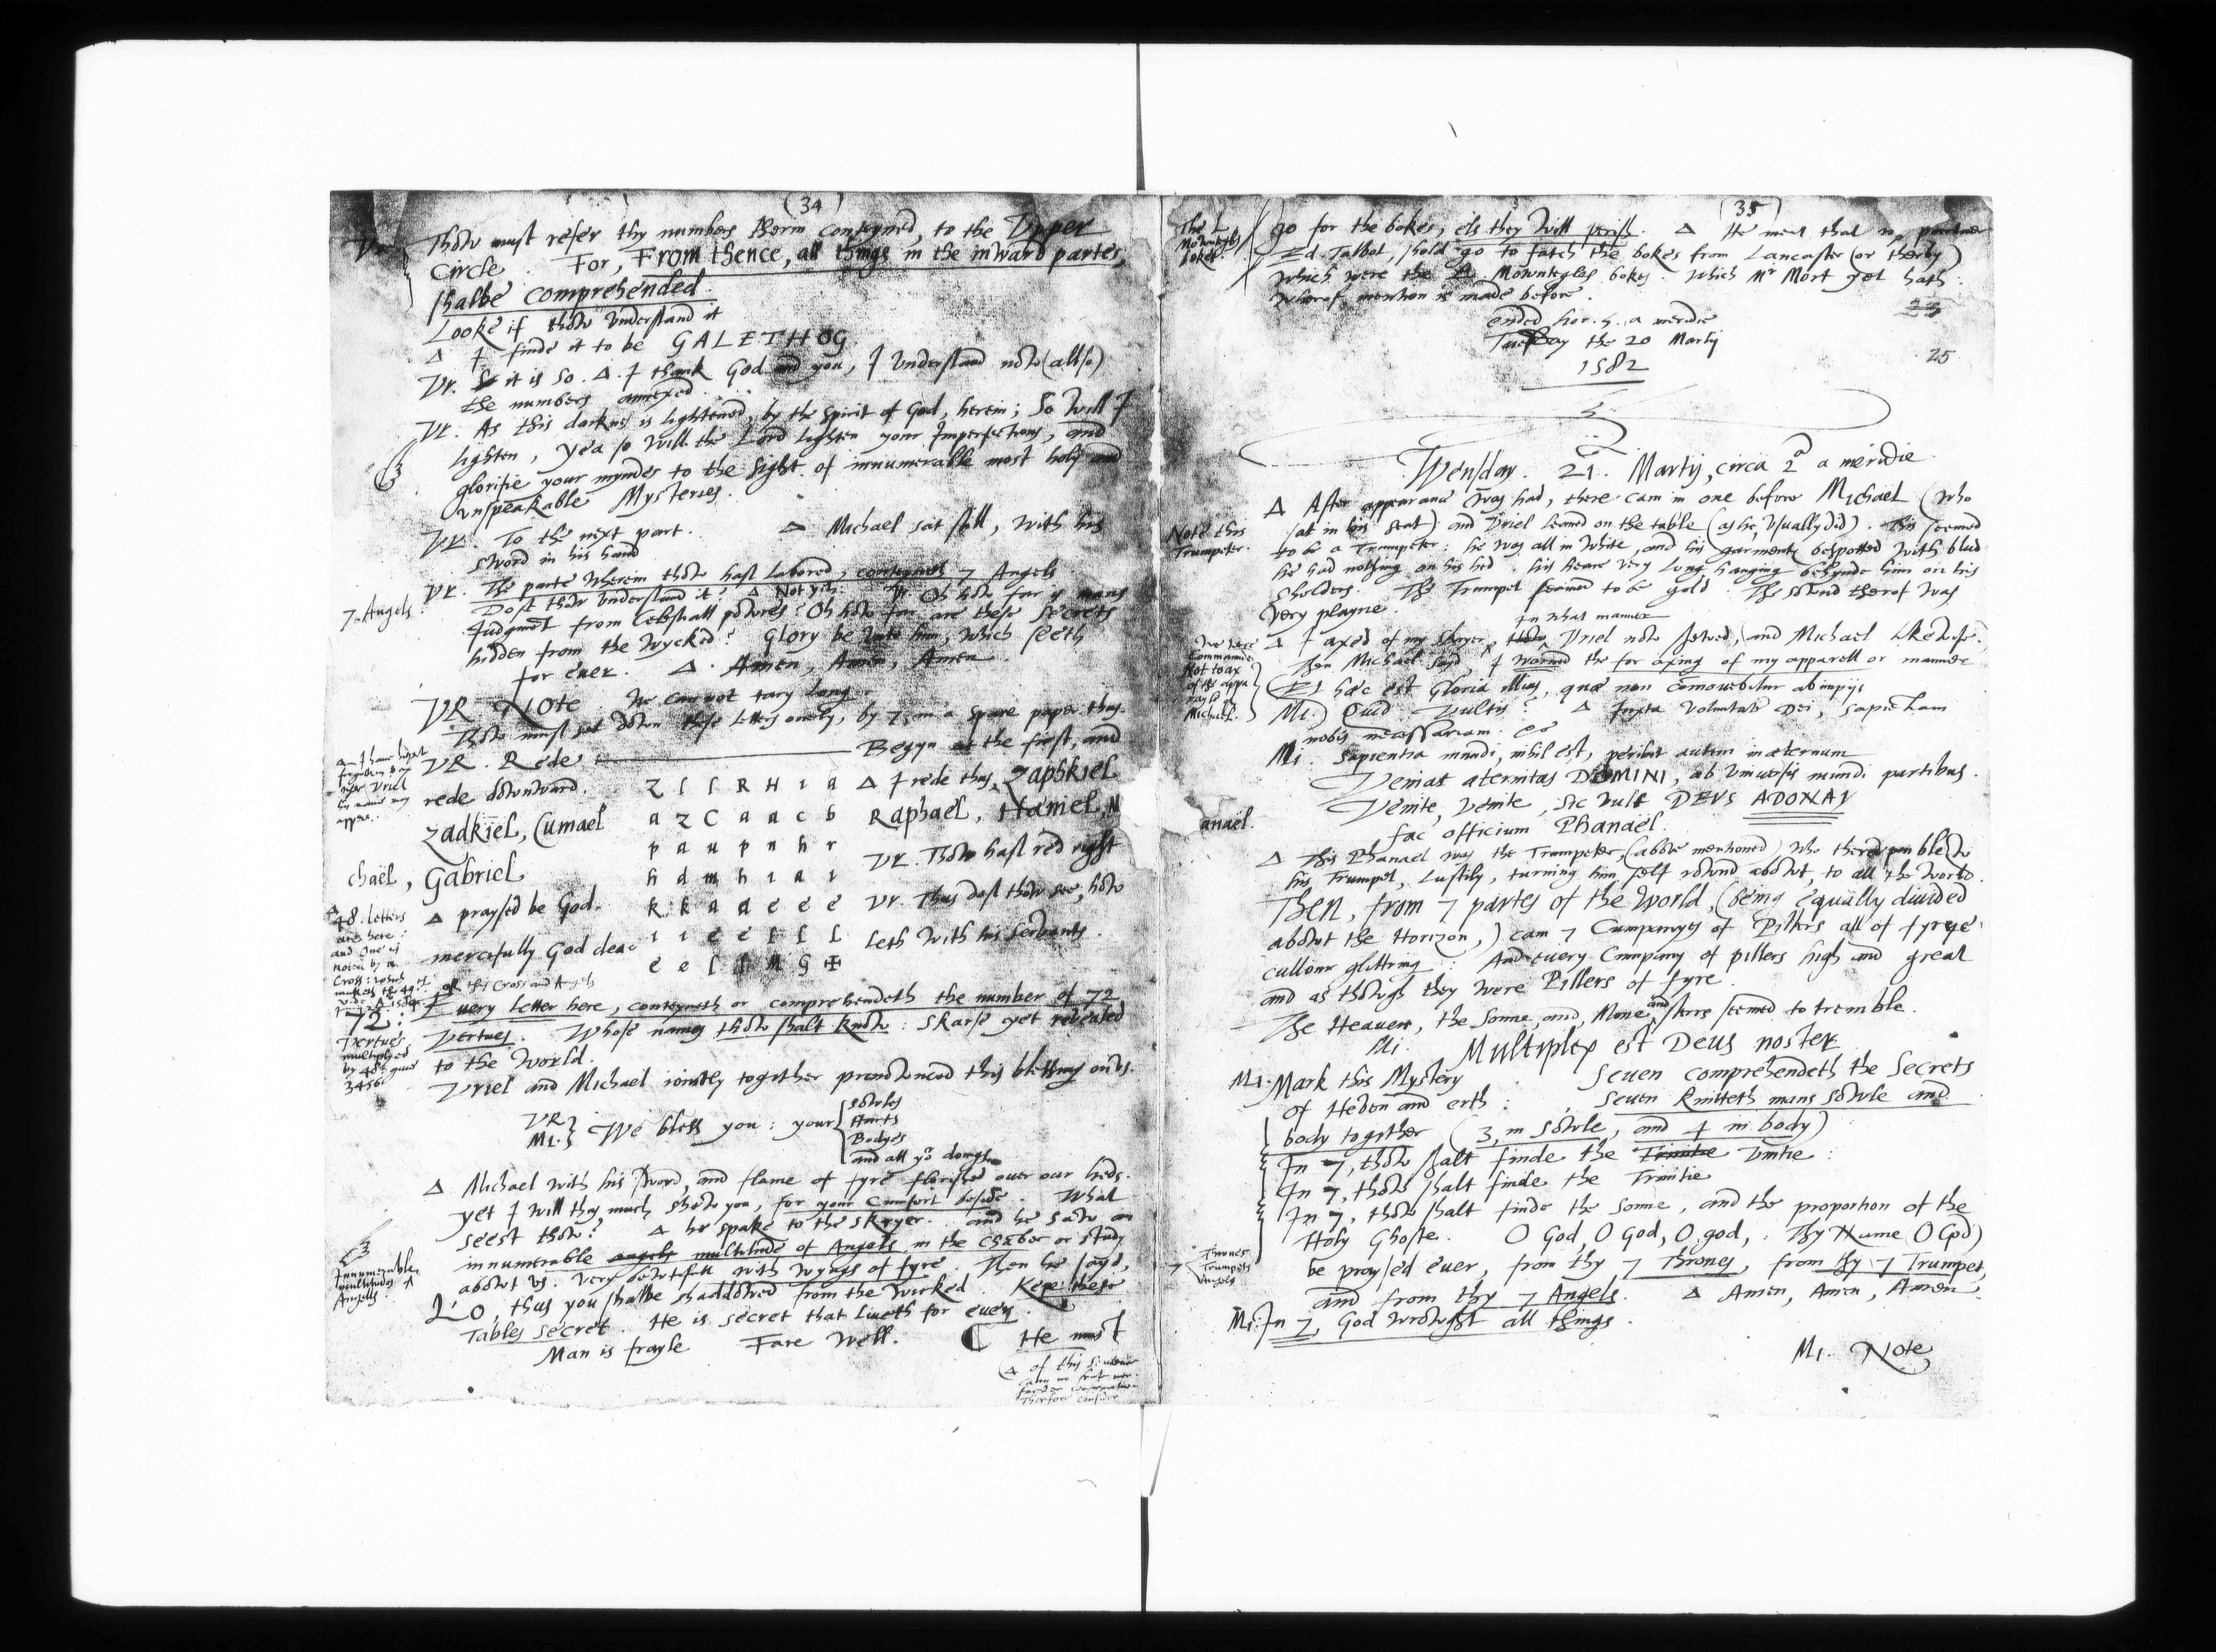 (34)
Vr. Thow must refer thy numbers therin conteyned, to the Vpper
Circle. For, From thence, all things in the inward partes,
shalbe comprehended.
Looke if thow vnderstand it
Δ I finde it to be GALETHOG
Vr. it is so. Δ. I thank God and you, I vnderstand now (allso)
the numbers annexed.
Vr. As this darknes is lightened, by the spirit of God, herein; So will I
lighten, yea so will the Lord lighten your Imperfections, and
glorifie your myndes to the sight of innumerable most holy and
vnspeakable Mysteries.
Vr. To the next part. Δ Michael sat still, with his
sword in his hand
7. Angels.
Vr. The parte wherein thow hast labored, conteyneth 7 Angels
Dost thow vnderstand it? Δ Not yet. Vr. Oh how far is mans
Iudgment from Celestiall powres? Oh how far are these secrets
hidden from the wycked? Glory be vnto him, which seeth
for ever. Δ. Amen, Amen, Amen.
VR Note We cannot tary long
Thow must set down these letters onely, by 7, in a spare paper thus.
VR. Rede Begyn at the first, and
rede downward.
Z l l R H i a Δ I rede thus, Zaphkiel
Zadkiel, Cumael a z C a a c b Raphaël, Haniel, Mi
p a u p n h r Vr. Thow hast red right
chaël, Gabriel h d m h i a i
Δ praysed be God. k k a a e e e Vr. Thus dost thow see, how
mercifully God dea i i e e l l l leth with his servants.
e e l l M G ✠
Δ 48. letters
are here:
and One is
noted by a
Cross: which
maketh the 49th.
of this Cross and Angels
Every letter here, conteyneth or comprehendeth the number of 72
Vertues. Whose names thow shalt know: skarse yet revealed
to the world.
72:
Vertues
multiplyed
by 48: giue
3456
Vriel and Michael iointly together pronownced this blessing on vs.
VR
MI. We bless you: your
sowles
Harts
Bodyes
and all yor doings
Δ Michael with his sword, and flame of fyre florished over our heds.
yet I will thus much shew you, for your Cumfort beside. What
seest thow? Δ he spake to the skryer. and he saw an
innumerable angels multitude of Angels in the Chaber or study
abowt vs. very bewtifull with wyngs of fyre. Then he sayd,
Innumerable
multitudes of
Angels.
Lo, thus you shalbe shaddowed from the wicked. Kepe these
Tables secret. He is secret that liueth for euer.
Man is frayle Fare well. He must
(35)
go for the bokes, els they will perish. Δ He ment that my
Ed. Talbot, shold go to fatch the bokes from Lancaster (or therby)
which were the L. Mowntegles bokes which Mr Mort yet hath:
wherof mention is made before.
The L
Mowntegles
bokes
ended hor. 5. a meridie
Tuesday the 20 Martij
1582
25
Wensday. 21. Martij, circa 2a a meridie
Note this
Trumpeter.
Δ After appearance was had, there cam in one before Michaël (who
sat in his seat) and Vriel leaned on the table (as he vsually did). This seemed
to be a Trumpeter: he was all in white, and his garments bespotted with blud
he had nothing on his hed. his heare very long hanging behynde him on his
sholders. The Trumpet seamed to be gold. The sownd therof was
very playne.
in what manner
Δ I axed of my skryer, how, Vriel now shewed, (and Michael likewise.)
Then Michael sayd, I warned the for axing of my apparell or manner
Et haec est Gloria illius, quæ non comouebitur ab impijs
Mi. Quid vultis? Δ Iuxta voluntatem Dei, sapientiam
nobis necessariam. &c
Mi. Sapientia mundi, nihil est, peribit autem in æternum
Veniat æternitas DOMINI, ab Vniuersis mundi partibus.
Venite, venite, sic vult DEVS ADONAY
fac officium Phanaël.
anaël.
Δ This Phanael was the Trumpeter, (above mentioned) who therevpon blew
his Trumpet, Lustily, turning him self rownd abowt, to all the world.
Then, from 7 partes of the world, (being equally divided
abowt the Horizon,) cam 7 Cumpanyes of Pillers all of fyrye
cullour glittring: And euery Cumpany of pillers high and great
and as thowgh they were Pillers of fyre.
The Heaven, the Sonne, and, Mone and sterrs seemed to tremble.
Mi. Multiplex est Deus noster
Mi. Mark this Mystery Seuen comprehendeth the Secrets
of Heven and erth: Seuen knitteth mans sowle and
body together (3, in sowle, and 4 in body)
In 7, thow shalt finde the Trinitie Vnitie:
In 7, thow shalt finde the Trinitie
In 7, thow shalt finde the Sonne, and the proportion of the
Holy Ghoste. O God, O God, O god,: Thy Name (O God)
be praysed euer, from thy 7 Thrones, from thy 7 Trumpets,
and from thy 7 Angels. Δ Amen, Amen, Amen.
7
Thrones
Trumpets
Angels
Mi. In 7, God wrowght all things.
Mi. Note